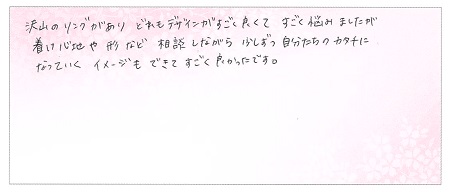 沢山のリングがあり どれもデザインがすごく良くて すごく悩みましたが
着け心地や形など 相談しながら 少しずつ自分たちのカタチに
なっていく イメージも できて すごく良かったです。